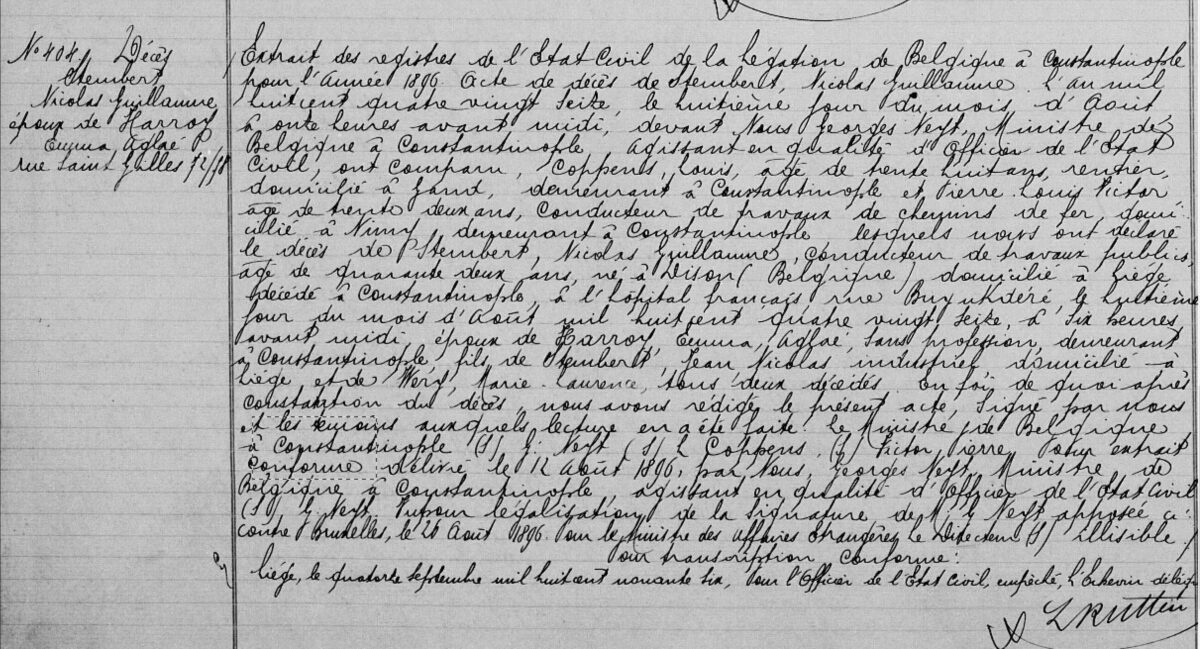 N° 404. Décès
Stembert
Nicolas Guillaume
époux de Harroy
Emma Aglaé
rue Saint Gilles 72/78
Extrait des registres de l'Etat Civil de la légation, de Belgique à Constantinople
pour l'Année 1896 Acte de décès de Stembert, Nicolas Guillaume. L'an mil
huit cent quatre vingt seize, le huitième jour du mois, d'Août
à onze heures avant midi, devant Nous Georges Neyt, Ministre de
Belgique à Constantinople, agissant en qualité d'Officier de l'Etat
Civil, ont comparu, Coppens, Louis, âgé de trente huit ans, rentier,
domicilié à Gand, demeurant à Constantinople et Pierre Louis Victor
âgé de trente deux ans, conducteur de travaux de chemins de fer, domi
cilié à Nimy, demeurant à Constantinople lesquels nous ont déclaré
le décès de Stembert, Nicolas Guillaume, conducteur de travaux publics,
âgé de quarante deux ans, né à Dison (Belgique), domicilié à Liége,
décédé à Constantinople, à l'hôpital français rue Buyukdéré, le huitième
jour du mois d'Août mil huit cent quatre vingt seize, à six heures
avant midi, époux de Harroy, Emma, Aglaé, sans profession, demeurant
à Constantinople, fils de Stembert, Jean Nicolas industriel domicilié à
Liége, et de Wéry, Marie-Laurence, tous deux décédés. En foi de quoi après
constatation du décès, nous avons rédigé le présent acte, signé par nous
et les témoins auxquels lecture en a été faite. Le Ministre de Belgique
à Constantinople (S) G. Neyt (S) L Coppens. (S) Victor, Pierre. Pour extrait
conforme délivré le 12 Août 1896, par Nous, Georges Neyt, Ministre de
Belgique à Constantinople, agissant en qualité d'Officier de l'Etat Civil
(S) G. Neyt. Vu pour légalisation de la signature de M. G Neyt apposée ci-
contre Bruxelles, le 26 Août 1896. Pour le Ministre des Affaires Etrangères, le Directeur (S) illisible
Pour transcription conforme:
Liége, le quatorze septembre mil huit cent nonante six, Pour l'Officier de l'Etat Civil, empêché, L'Echevin délégué